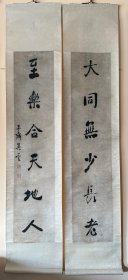 大同無少長老
至樂合天地人